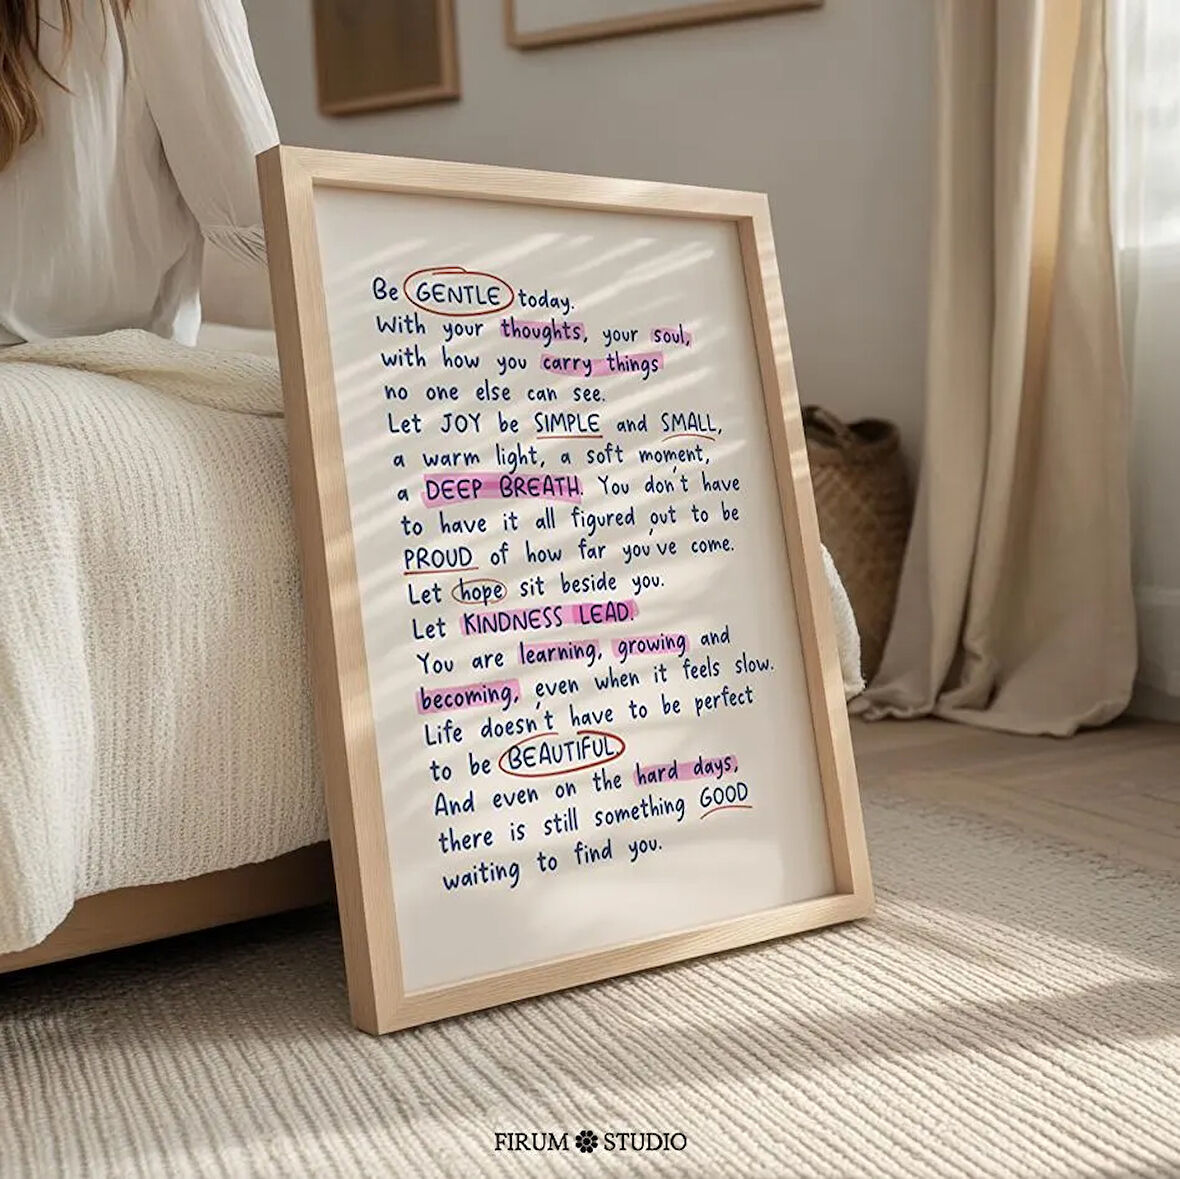 Be GENTLE today.
With your thoughts, your soul,
with how you carry things
no one else can see.
Let JOY be SIMPLE and SMALL,
a warm light, a soft moment,
a DEEP BREATH. You don't have
to have it all figured out to be
PROUD of how far you've come.
Let hope sit beside you.
Let KINDNESS LEAD.
You are learning, growing and
becoming, even when it feels slow.
Life doesn't have to be perfect
to be BEAUTIFUL.
And even on the hard days,
there is still something GOOD
waiting to find you.
FIRUM STUDIO